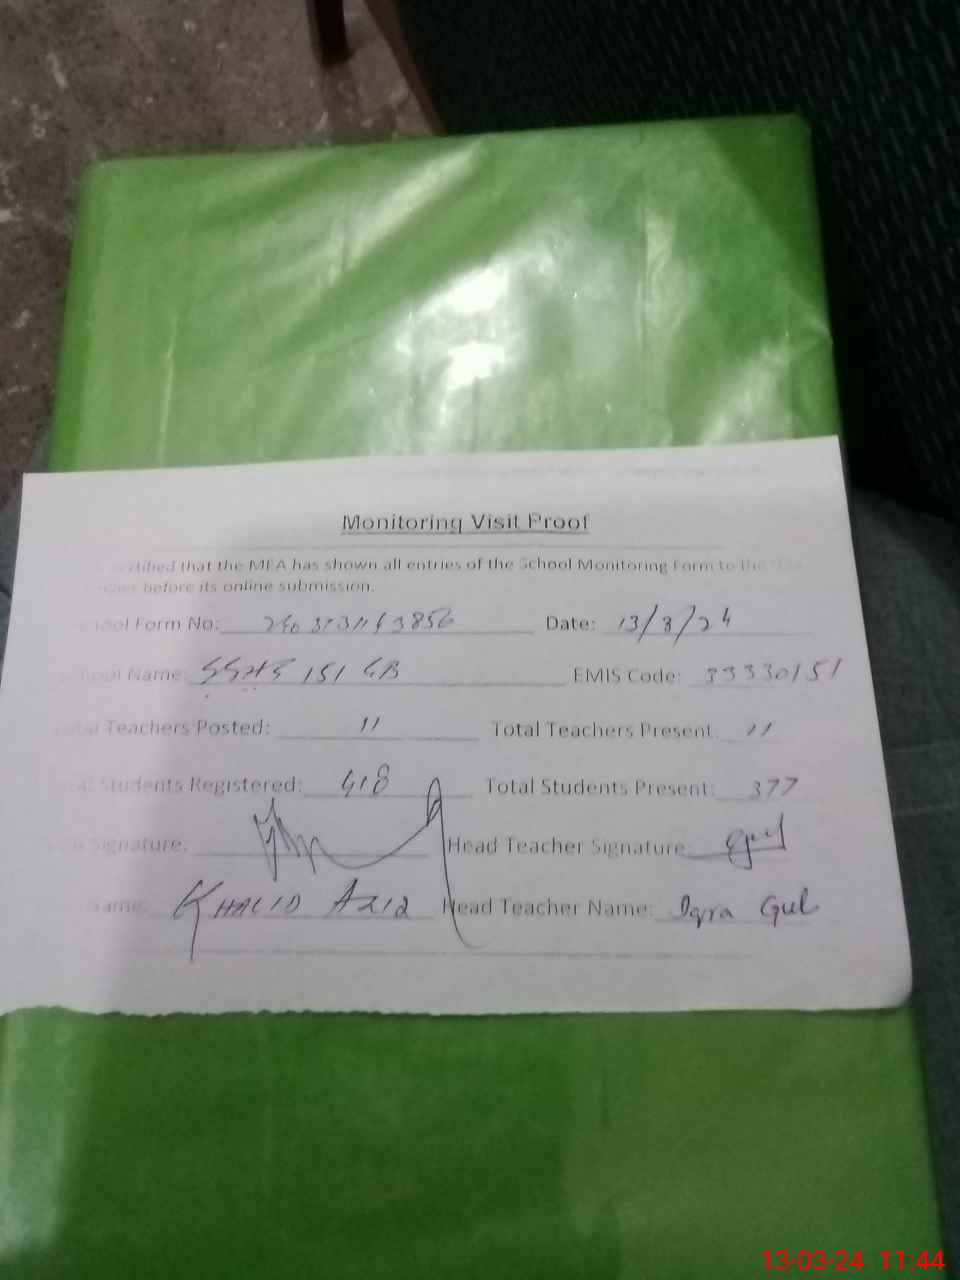 Monitoring Visit Proof
certified that the MEA has shown all entries of the School Monitoring Form to the
before its online submission.
School Form No: Date: 13/3/24
School Name: 151 GB EMIS Code: 33330151
Total Teachers Posted: 11 Total Teachers Present: 11
Total Students Registered: 418 Total Students Present: 377
Signature: Head Teacher Signature:
Name: KHALID AZIZ Head Teacher Name: Iqra Gul
13-03-24 11:44